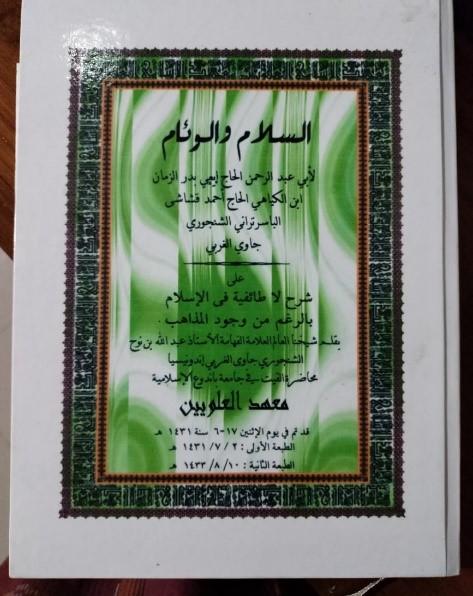 السلام والوئام
لأبي عبد الرحمن الحاج إيهي بدر الزمان
ابن الكياهي الحاج أحمد قشاشى
الباسرتراني الشنجوري
جاوي الغربي
على
شرح لا طائفية فى الإسلام
بالرغم من وجود المذاهب
بقلم شيخنا العالم العلامة الفهامة الأستاذ عبد الله بن نوح
الشنجوري جاوى الغربي إندونيسيا
محاضرة ألقيت في جامعة باندوغ الإسلامية
معهد العلويين
قد تم في يوم الإثنين ١٧-٦ سنة ١٤٣١ هـ
الطبعة الأولى : ٢ / ٧ / ١٤٣١ هـ
الطبعة الثانية : ١٠ / ٨ / ١٤٣٣ هـ